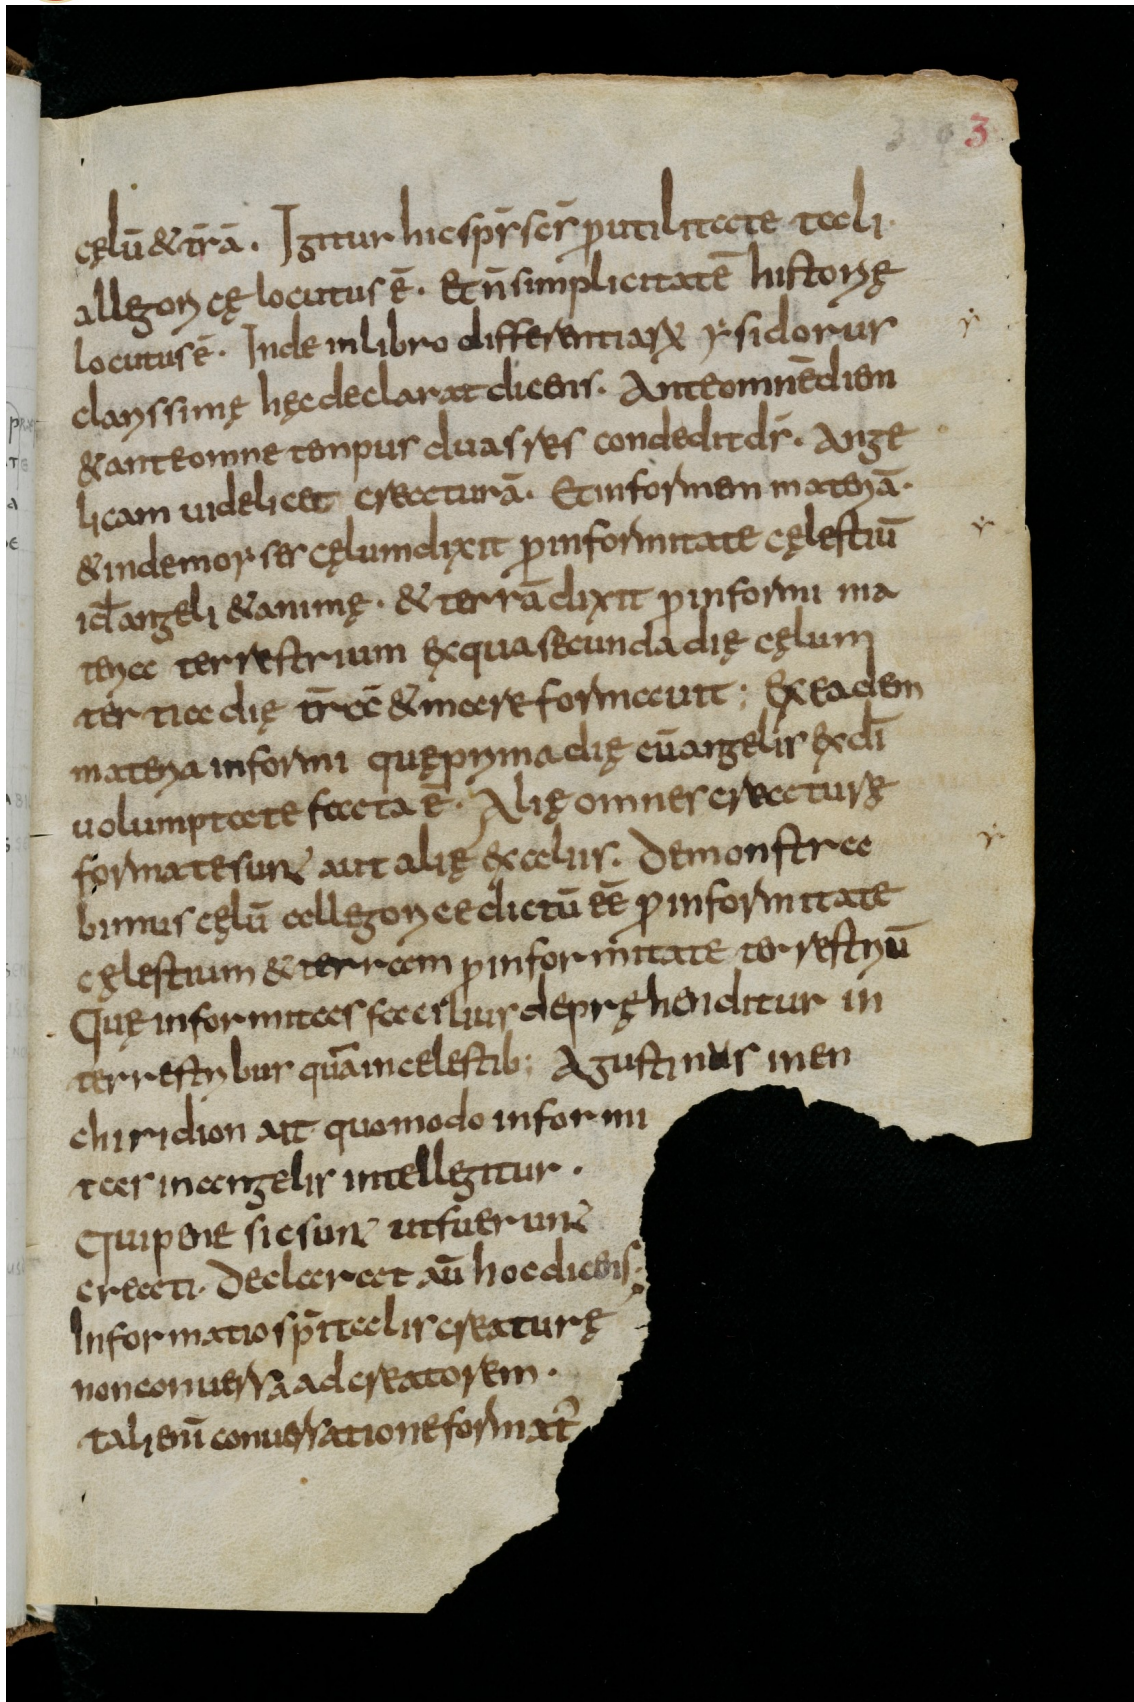 3 9 3
cęlū & tr̄ā. Igitur hic sps̄ scs̄ p utilitate tali
allegoricę locutus ē. Et n̄ simplicitatē historię
locutus ē. Inde in libro differentiarū ysidorus
clarissimę hęc declarat dicens. Ante omnē diem
& ante omne tenpus duas res condedit ds̄. Ange
licam uidelicet creaturā. Et informem materiā.
& inde moyses cęlum dixit p informitate cęlestiū
id ̄ angeli & animę. & terrā dixit p informi ma
teria terrestrium ex qua secunda dię cęlum
tertia dię tr̄ā & mare formauit; Ex eadem
materia informi quę prima dię cū angelis ex dī
uolumptate facta ē. Alię omnes creaturę
formate sunt aut alię ex celis. Demonstra
bimus cęlū allegorice dictū eē p informitate
cęlestium & terram p informitate terrestriū
Quę informitas facilius depręhenditur in
terrestribus quā in celestib; Agustinus in en
chiridion ait quomodo informi
tas in angelis intellegitur.
Qui pene sic sunt ut fuerunt
creati. Declarat aū hoc dicens.
Informatio spīitalis creaturę
non conuersa ad creatorem.
tali enī conuersatione formatr̄